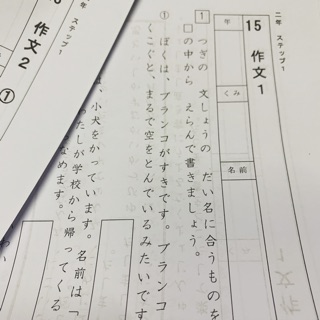 二年 ステップ1
15 作文1
年
くみ
名前
1 つぎの 文しょうの だい名に合うものを
□の中から えらんで書きましょう。
① ぼくは、ブランコがすきです。ブランコ
こぐと、まるで空をとんでいるみたいです
は、小犬をかっています。名前は「
たしが学校から帰ってくる
なめます。
二年 ステップ1
作文2
①